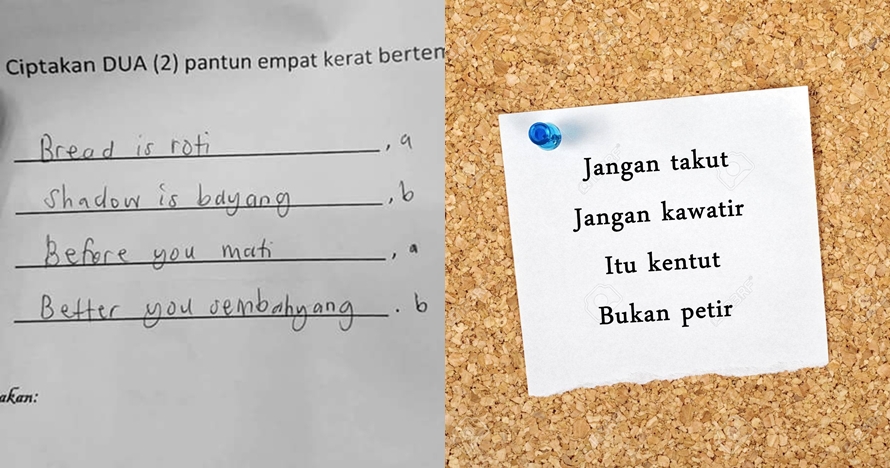 Ciptakan DUA (2) pantun empat kerat bertem
Bread is roti , a
Shadow is bayang , b
Before you mati , a
Better you sembahyang . b
akan:
Jangan takut
Jangan kawatir
Itu kentut
Bukan petir